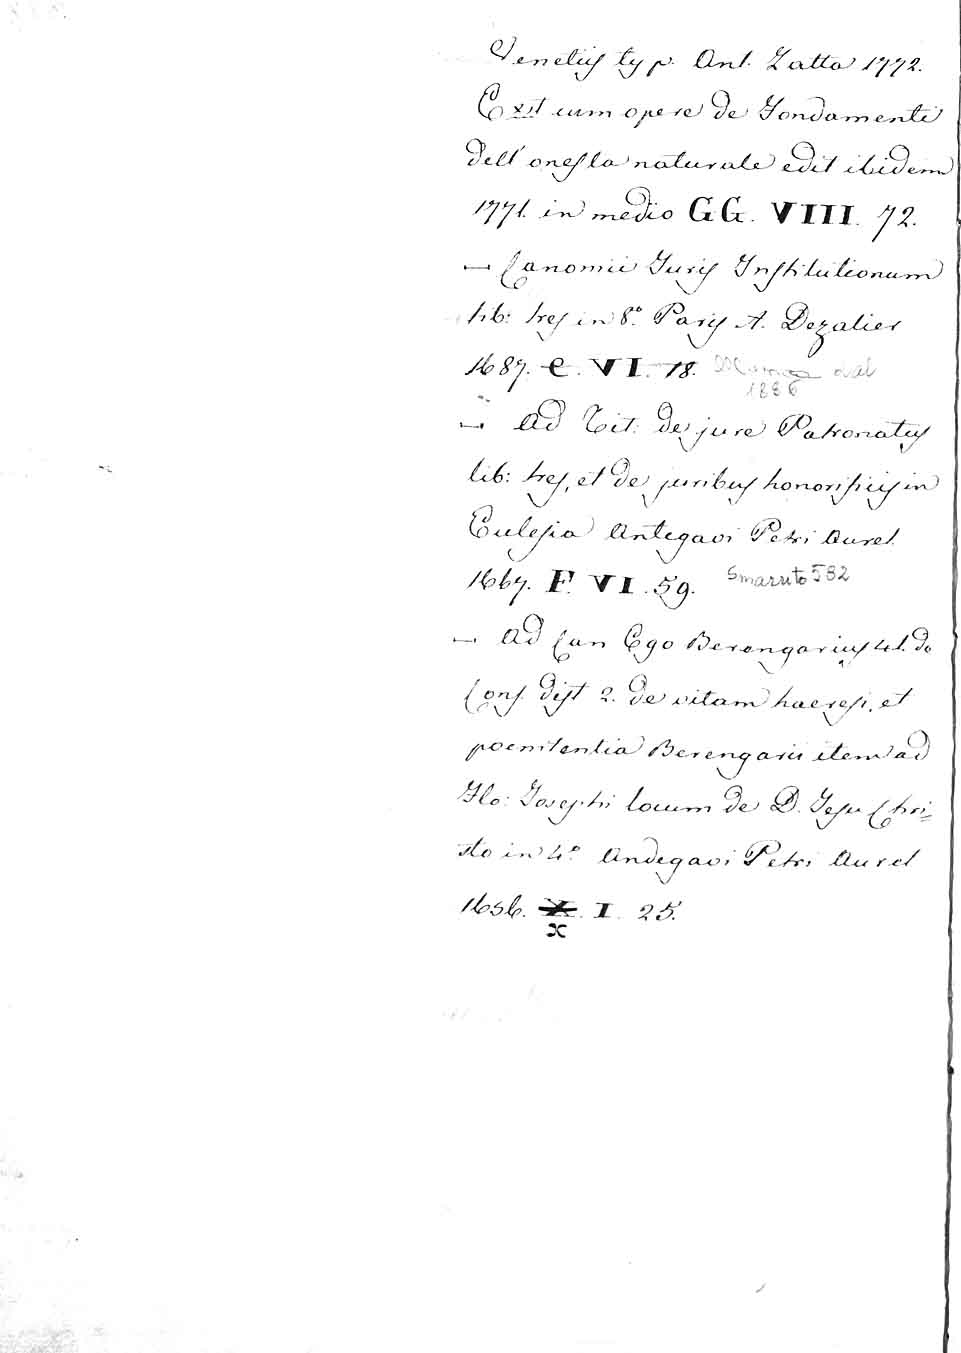 Venetiis typ. Ant. Zatta 1772.
Exit cum opere de Fondamenti
dell' onesta naturale edit ibidem
1771. in medio GG. VIII. 72.
— Canonici Juris Institutionum
lib: tres in 8.° Paris A. Dezalier
1687. C. VI. 18. Manca dal
1886
— Ad Tit: de jure Patronatus
lib: tres, et de juribus honorificis in
Ecclesia Antegavi Petri Aurel.
1667. F. VI. 59. Smarrito 582
— Ad Can Ego Berengarius 41. de
Cons dist 2. de vitam haeresi, et
poenitentia Berengarii item ad
Flo: Josephi locum de D. Jesu Chri=
sto in 4.° Andegavi Petri Aurel
1656. X. I. 25.
X